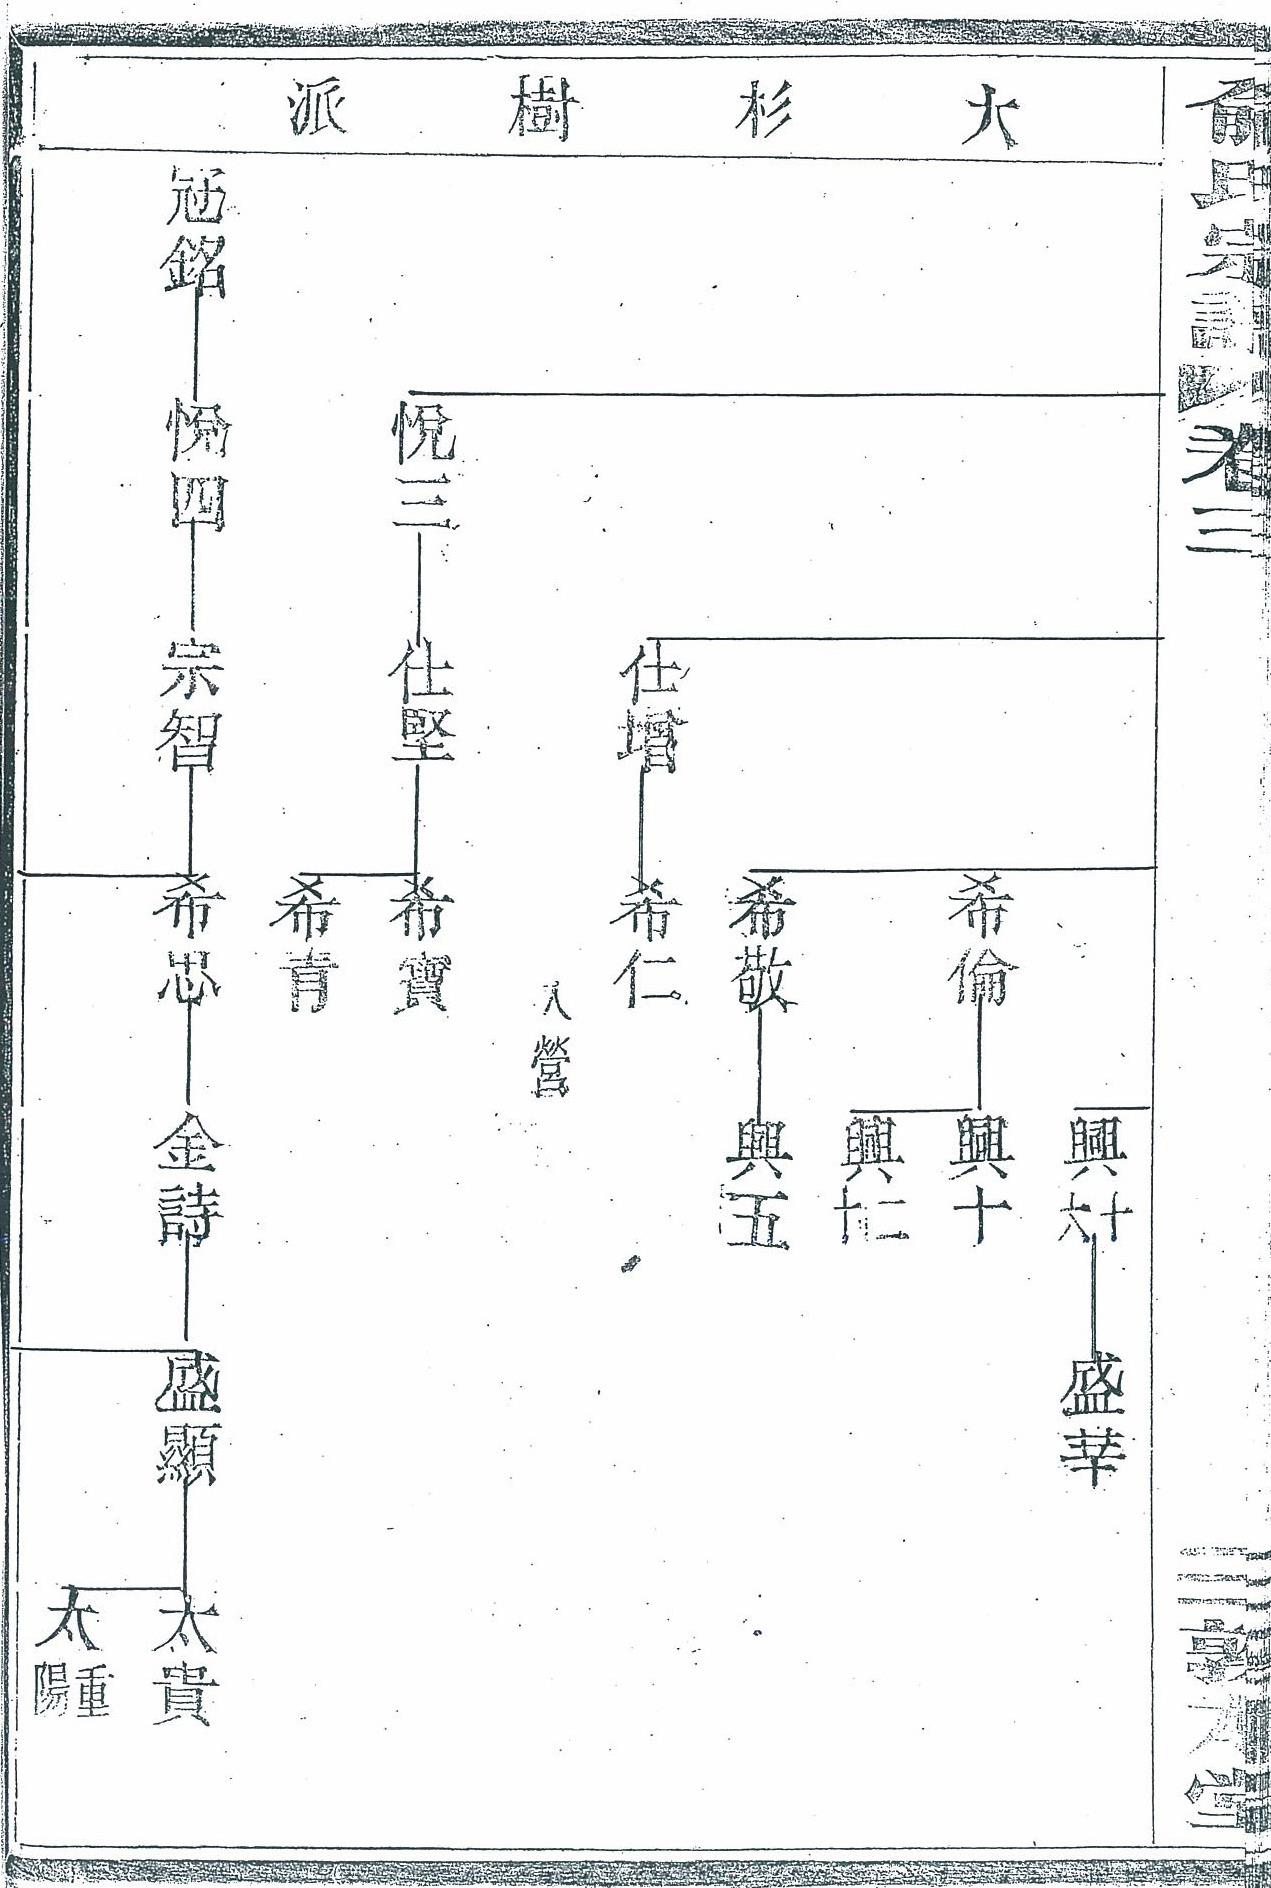 俞氏宗譜
卷三
敦本堂
大杉樹派
興十六
盛莘
希倫
興十
興十二
希敬
興五
仕增
希仁
入營
悅三
仕堅
希寶
希肯
冠銘
悅四
宗智
希忠
金詩
盛顯
太貴
太重陽